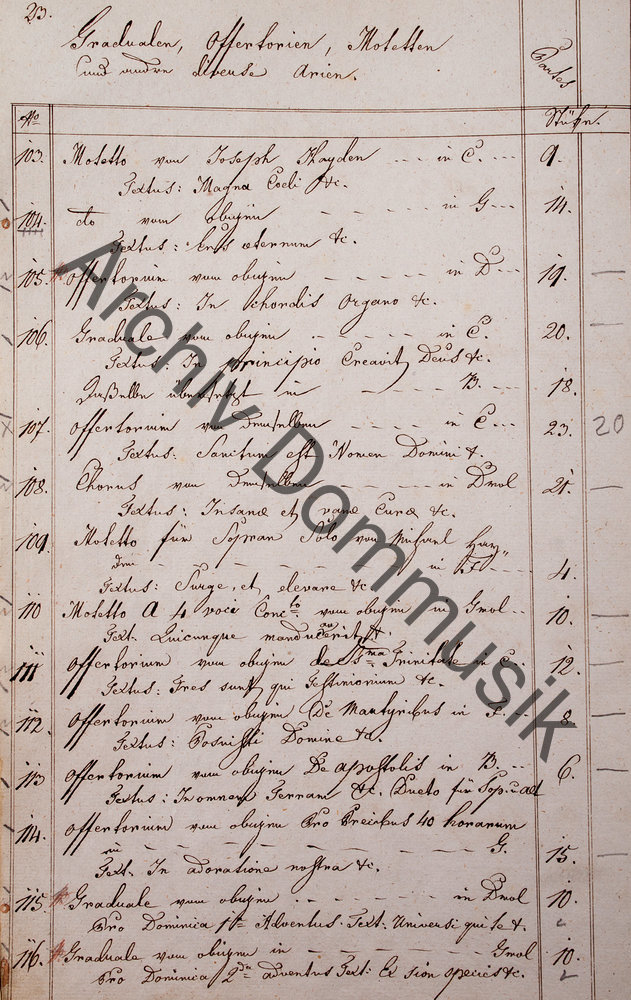 23.
Gradualen, Offertorien, Motetten
und andre diverse Arien.
Partes
No Stücke.
103. Motetto von Joseph Hayden --- in C. --- 9.
Textus: Magna Coeli &c.
104. do vom obigen - - - - - in G--- 14.
Textus: Ens aeternum &c.
105. Offertorium vom obigen - - - - - in D--- 19.
Textus: In Chordis Organo &c.
106. Graduale vom obigen - - - - - in C. 20.
Textus: In Principio Creavit Deus &c.
Dasselbe übersetzt in - - - - B. --- 18.
107. Offertorium von demselben - - - - in C--- 23. 20
Textus: Sanctum est Nomen Domini &.
108. Chorus von demselben - - - - in Dmol 21.
Textus: Insanae et vanae Curae &c.
109. Motetto für Sopran Solo von Michael Hay„
den - - - - - - - - - in - - 4.
Textus: Surge, et elevare &c.
110 Motetto a 4 voci Concto vom obigen in Gmol -- 10.
Text. Quicunque manducaverit &.
111 Offertorium vom obigen de Sma Trinitate in C-- 12.
Textus: Tres sunt qui Testimonium &c.
112. Offertorium vom obigen De Martyribus in F. -- 8
Textus: Posuisti Domine &c.
113 Offertorium vom obigen De apostolis in B. --- 6.
Textus: In omnem Terram &c. Dueto für Sop. u alt
114. Offertorium vom obigen Pro Precibus 40 horarum
in - - - - - - - - - G. 15.
Text. In adoratione nostra &c.
115. Graduale vom obigen - - - - - in Dmol 10.
Pro Dominica 1ma Adventus. Text: Universi qui te &.
116. Graduale vom obigen in - - - - - Gmol 10.
Pro Dominica 2da adventus Text: Ex Sion species &c.
Archiv Dommusik